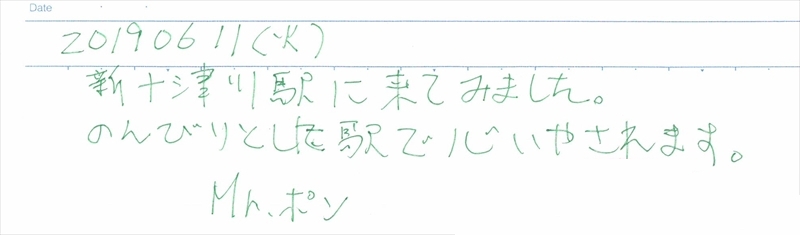 Date
20190611(火)
新十津川駅に来てみました。
のんびりとした駅で心いやされます。
Mr.ポン